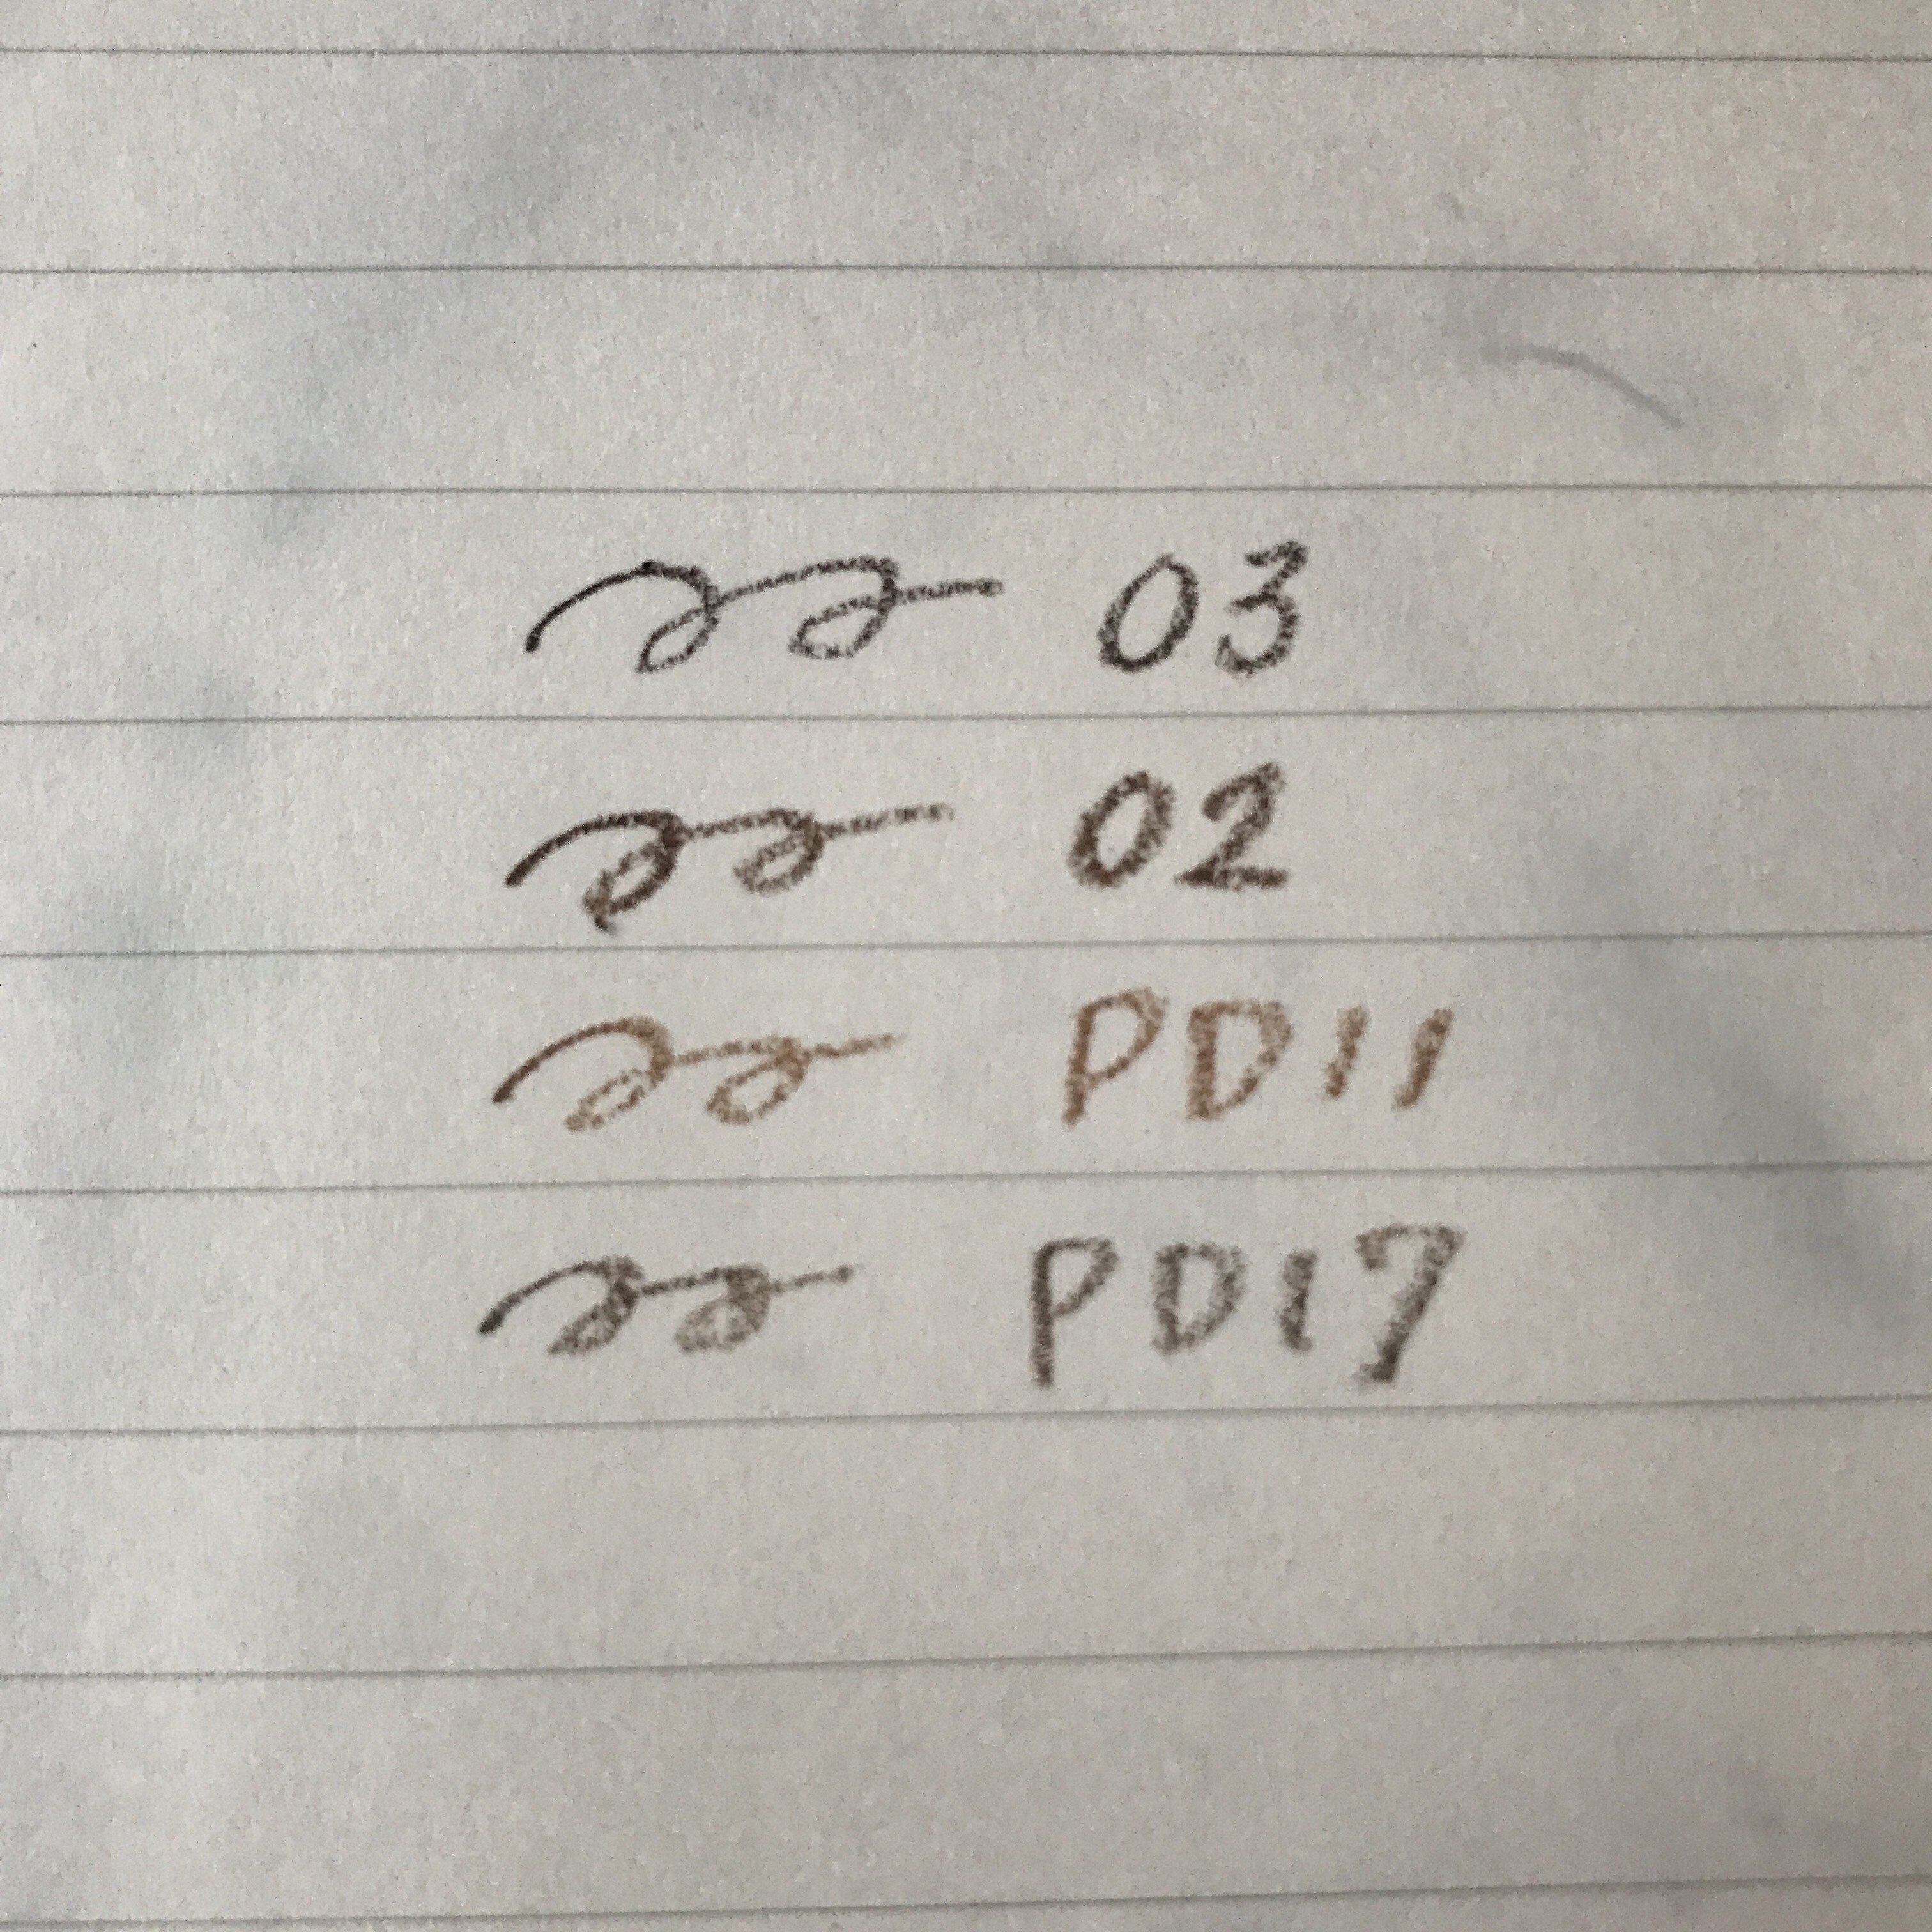 03
02
PD11
PD17